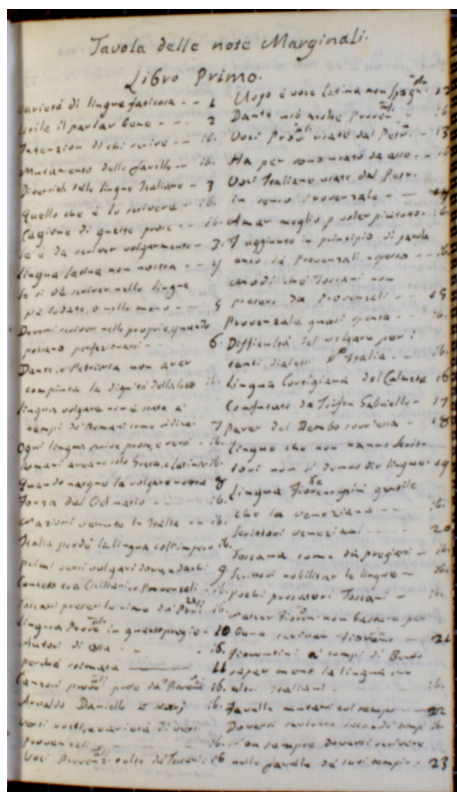 Tavola delle note Marginali.
Libro Primo.
Varietà di lingue faticosa - - 1
Utile il parlar bene - - - 2
Intenzion di chi scrive - - ib.
Mutamento delle favelle - ib.
Diversità delle lingue Italiane - 3
Quello che è lo scrivere - ib.
Cagione di queste prose - - ib.
Se è da scriver volgarmente - 3.
Lingua latina non nostra - - 4
Se si dè scriver nelle lingue
più lodate, o nelle meno - - 5
Doversi scriver nelle proprie, quando
possano perfezionarsi - - 6.
Dante, e Petrarca non aver
compiuta la dignità della loro ib.
Lingua volgare non è nata a'
tempi de' Romani come si dice 7
Ogni lingua scrive prosa, e versi - ib.
Romani aveano solo Greca, e Latina ib.
Quando nacque la volgare nostra 8
Forza del Ciel natio - - ib.
Nazioni venute in Italia - - ib.
Italia perdè la lingua coll'impero ib.
primi versi volgari dove, e da chi 9.
Contesa tra Ciciliani, e Provenzali ib.
Toscani preser le rime da' Prov.li ib.
Lingua Prov.le in quanto pregio - 10
Autori di essa - - ib.
perchè stimata - 11
Canzoni prov.li ib.
Arnaldo Daniello ib.
versi nostri, e varietà di versi
provenzali - - ib.
Voci Provenz.li tolte da' Toscani ib.
Uopo è voce latina non 12
Dante usò anche Proven.li ib.
Voci Prov.li usate dal Petr.a 13
Ha per sono usato da esso - - ib.
Voci Italiane usate dal Petr.
in senso Provenzale - 14
Amar meglio p voler piuttosto ib.
A aggiunto in principio di parola
uso de' Provenzali, e spesso - - ib.
modi che Toscani non
presero da Provenzali - - 15
Provenzale quasi spenta - - ib.
Difficultà del volgare per i
tanti dialetti p Italia - ib.
Lingua Cortigiana del Calmeta 16
Confutato da Trifon Gabriello - 17
Parer del Bembo sovr'essa - - 18
Lingue che non hanno Scrit-
tori non si denno dir lingue 19
Lingua Fiorentina più gentile
che la veneziana - - ib.
Scrittori veneziani - - 20
Toscana come da pregiarsi - ib.
Scrittori nobilitar le lingue - ib.
Pochi prosatori Toscani - - ib.
nascer Fioren.no non bastare per
bene scrivere - 21
Fiorentini a' tempi di Bembo
saper meno la lingua che
altri Italiani - ib.
Favella mutarsi col tempo - 22
Doversi scrivere secondo i tempi ib.
Non sempre doversi scrivere
nella favella de' suoi tempi - 23